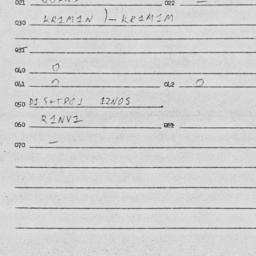 021 022 —
030 KRIMIN)—KRIMIM
031
040 0
041 0 042 0
050 DISTROJ IZNOS
060 RINVI 061
070 —